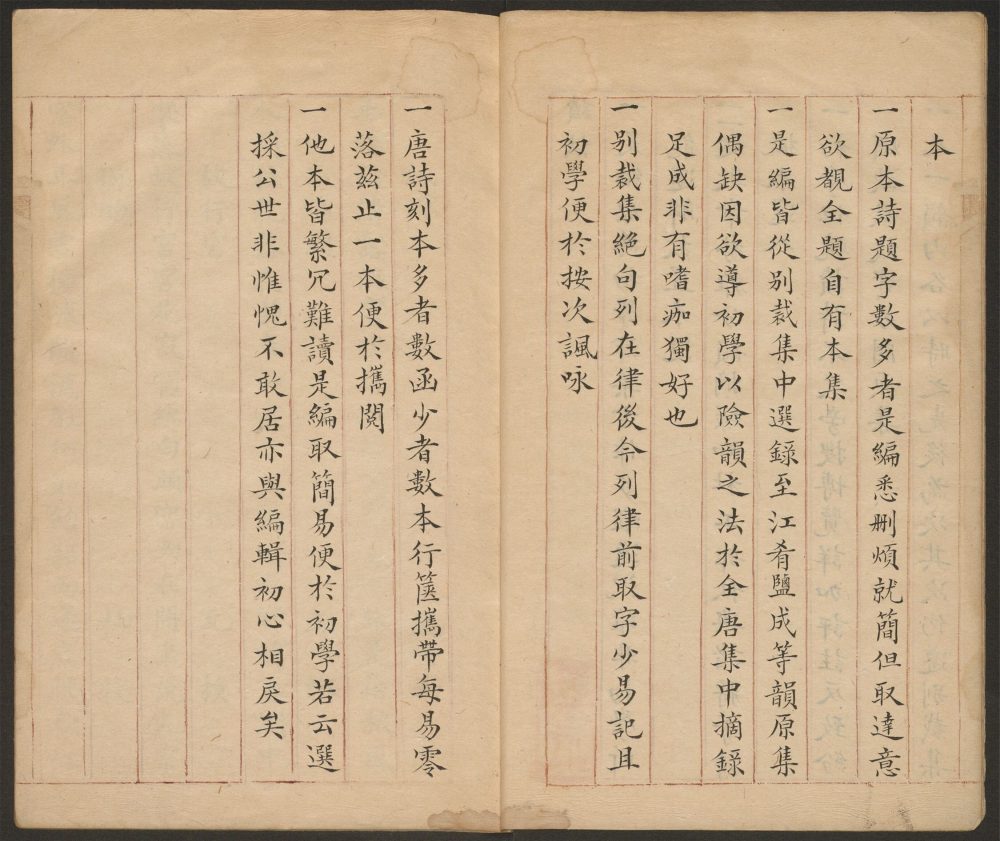 本
一原本詩題字數多者是編悉刪煩就簡但取達意
欲覩全題自有本集
一是編皆從別裁集中選錄至江肴鹽咸等韻原集
偶缺因欲導初學以險韻之法於全唐集中摘錄
足成非有嗜痂獨好也
一別裁集絶句列在律後今列律前取字少易記且
初學便於按次諷咏
一唐詩刻本多者數函少者數本行篋攜帶每易零
落兹止一本便於攜閱
一他本皆繁冗難讀是編取簡易便於初學若云選
採公世非惟愧不敢居亦與編輯初心相戾矣